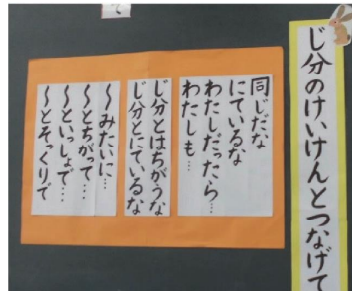 じ分のけいけんとつなげて
同じだな
にているな
わたしだったら…
わたしも…
じ分とはちがうな
じ分とにているな
～みたいに…
～とちがって…
～といっしょで…
～とそっくりで